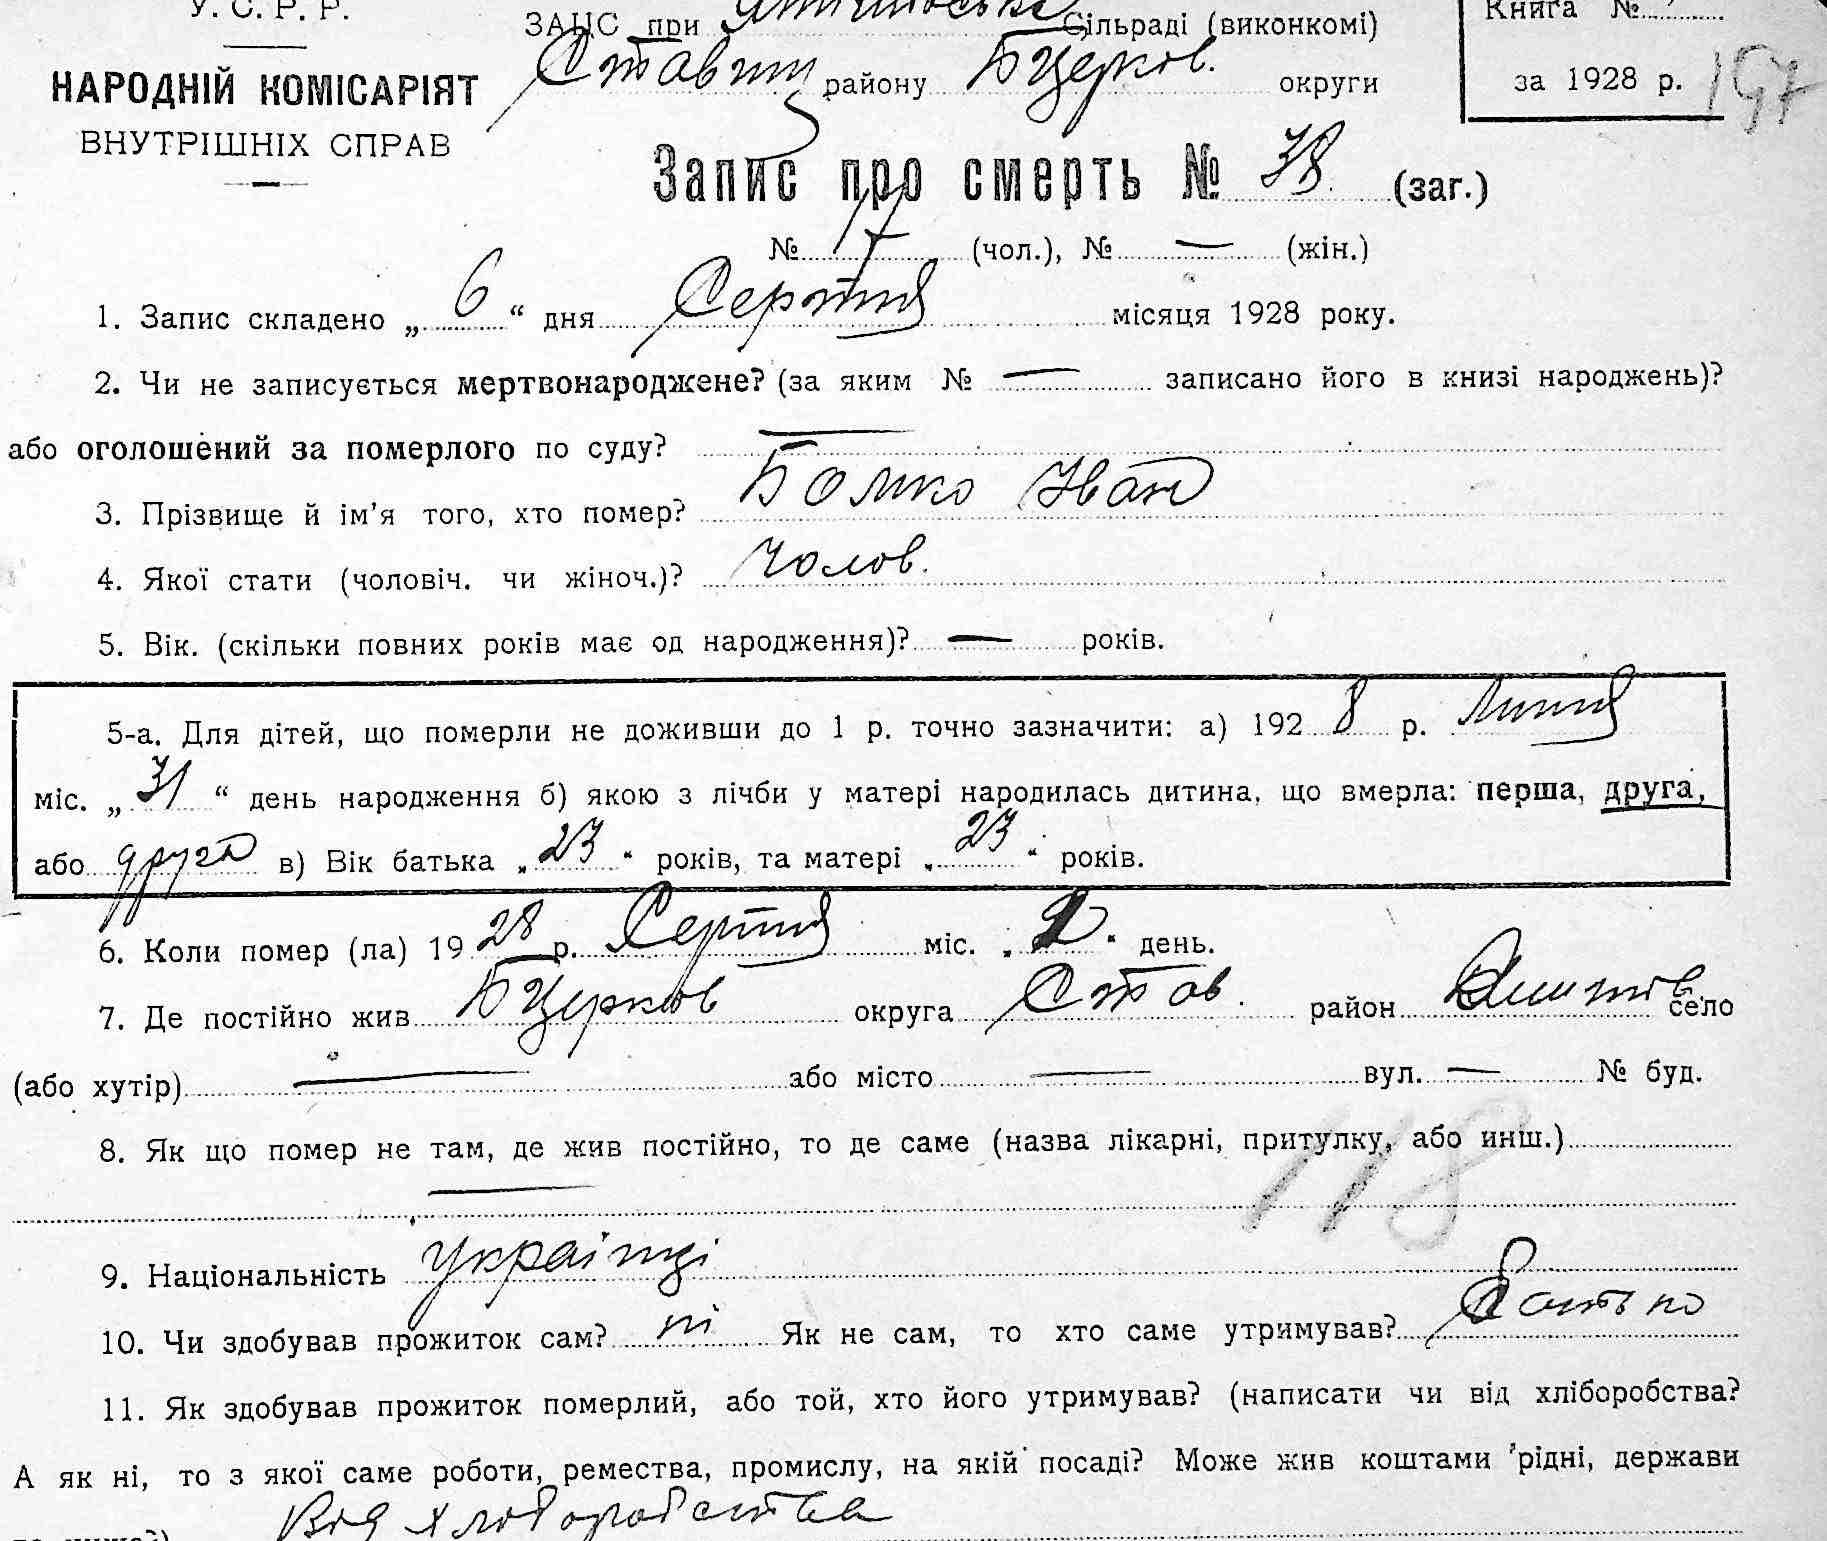 У. С. Р. Р.
НАРОДНІЙ КОМІСАРІЯТ
ВНУТРІШНІХ СПРАВ
ЗАЦС при Сільраді (виконкомі)
Ставищ району БЦерков. округи
Книга №
за 1928 р. 197
Запис про смерть № 38 (заг.)
№ 17 (чол.), № — (жін.)
1. Запис складено „ 6 “ дня Серпня місяця 1928 року.
2. Чи не записується мертвонароджене? (за яким № — записано його в книзі народжень)?
або оголошений за померлого по суду? —
3. Прізвище й ім'я того, хто помер? Бомко Іван
4. Якої стати (чоловіч. чи жіноч.)? Чолов.
5. Вік. (скільки повних років має од народження)? — років.
5-а. Для дітей, що померли не доживши до 1 р. точно зазначити: а) 1928 р. Липня
міс. „ 31 “ день народження б) якою з лічби у матері народилась дитина, що вмерла: перша, друга,
або друга в) Вік батька „ 23 “ років, та матері „ 23 “ років.
6. Коли помер (ла) 1928 р. Серпня міс. „ 2 “ день.
7. Де постійно жив БЦерков округа Став. район село
(або хутір) — або місто — вул. — № буд.
8. Як що помер не там, де жив постійно, то де саме (назва лікарні, притулку, або инш.)
—
118
9. Національність українці
10. Чи здобував прожиток сам? ні Як не сам, то хто саме утримував? Батько
11. Як здобував прожиток померлий, або той, хто його утримував? (написати чи від хліборобства?
А як ні, то з якої саме роботи, ремества, промислу, на якій посаді? Може жив коштами рідні, держави
Від хліборобства